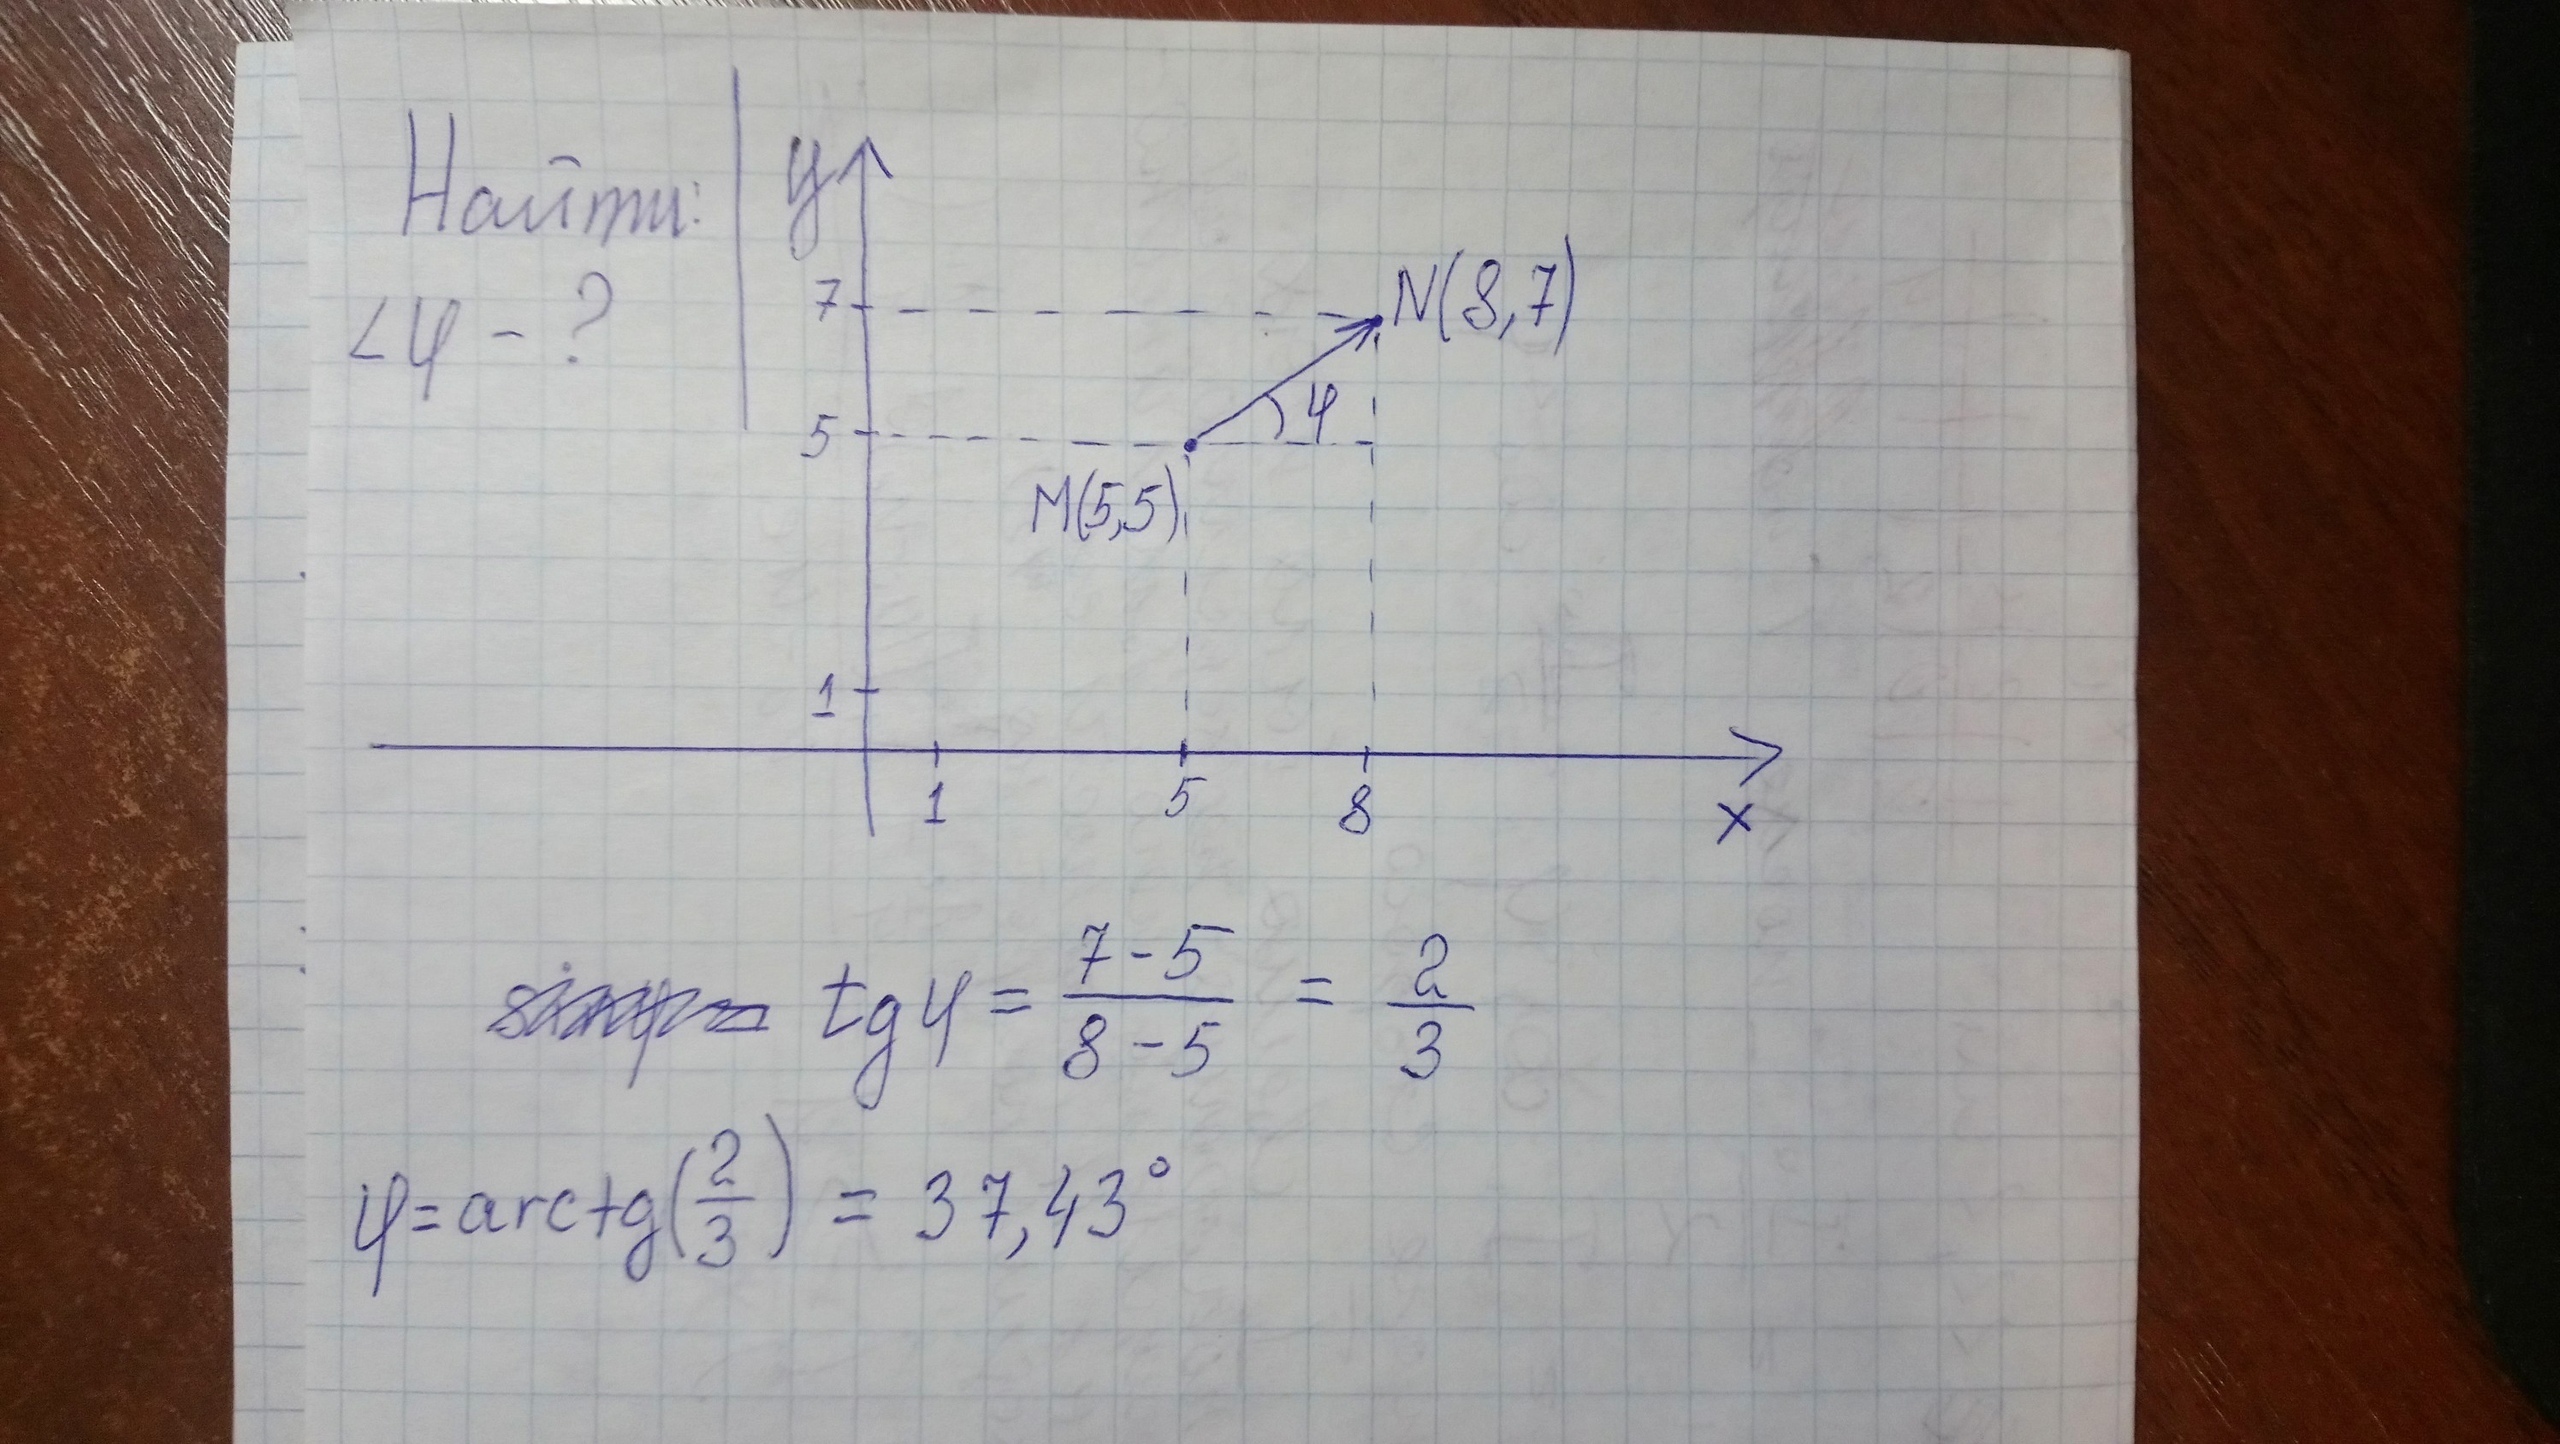 Найти:
∠φ - ?
y
7
N(8,7)
φ
5
M(5,5)
1
1 5 8
x
tgφ = (7-5)/(8-5) = 2/3
φ = arctg(2/3) = 37,43°